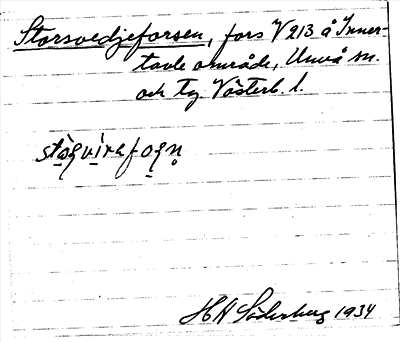 Storsvedjeforsen, fors V 213 å Inner-
tavle område, Umeå sn.
och tg. Västerb. l.
HA Söderberg 1934